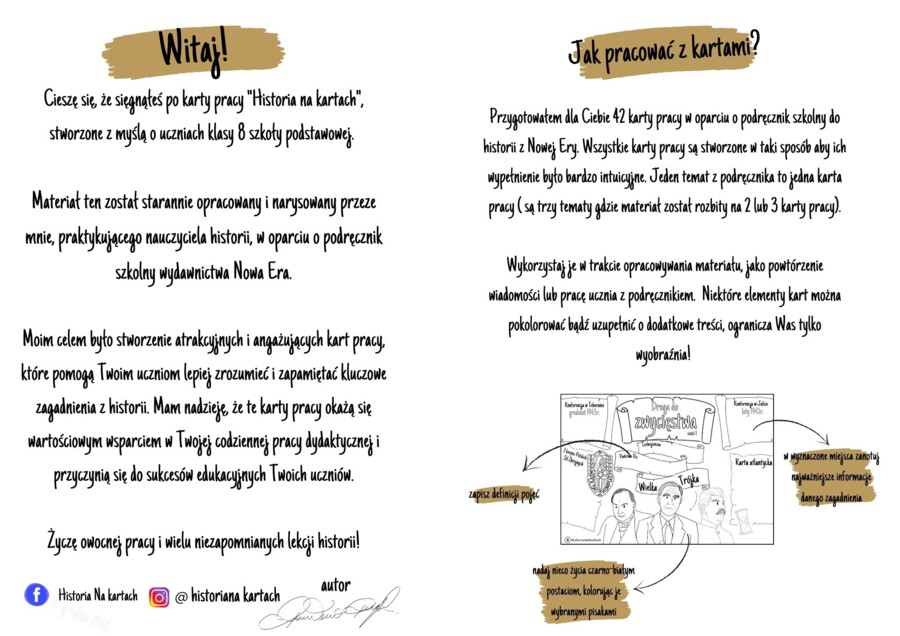 Witaj!
Cieszę się, że sięgnąłeś po karty pracy "Historia na kartach",
stworzone z myślą o uczniach klasy 8 szkoły podstawowej.
Materiał ten został starannie opracowany i narysowany przeze
mnie, praktykującego nauczyciela historii, w oparciu o podręcznik
szkolny wydawnictwa Nowa Era.
Moim celem było stworzenie atrakcyjnych i angażujących kart pracy,
które pomogą Twoim uczniom lepiej zrozumieć i zapamiętać kluczowe
zagadnienia z historii. Mam nadzieję, że te karty pracy okażą się
wartościowym wsparciem w Twojej codziennej pracy dydaktycznej i
przyczynią się do sukcesów edukacyjnych Twoich uczniów.
Życzę owocnej pracy i wielu niezapomnianych lekcji historii!
autor
Historia Na kartach
@ historiana kartach
Jak pracować z kartami?
Przygotowałem dla Ciebie 42 karty pracy w oparciu o podręcznik szkolny do
historii z Nowej Ery. Wszystkie karty pracy są stworzone w taki sposób aby ich
wypełnienie było bardzo intuicyjne. Jeden temat z podręcznika to jedna karta
pracy ( są trzy tematy gdzie materiał został rozbity na 2 lub 3 karty pracy).
Wykorzystaj je w trakcie opracowywania materiału, jako powtórzenie
wiadomości lub pracę ucznia z podręcznikiem. Niektóre elementy kart można
pokolorować bądź uzupełnić o dodatkowe treści, ogranicza Was tylko
wyobraźnia!
Konferencja w Teheranie
grudzień 1943r.
Droga do
zwycięstwa
część I
Konferencja w Jałcie
luty 1945r.
Karta atlantycka
Wielka
Trójka
zapisz definicji pojęć
w wyznaczone miejsca zanotuj
najważniejsze informacje
danego zagadnienia
nadaj nieco życia czarno-białym
postaciom, kolorując je
wybranymi pisakami